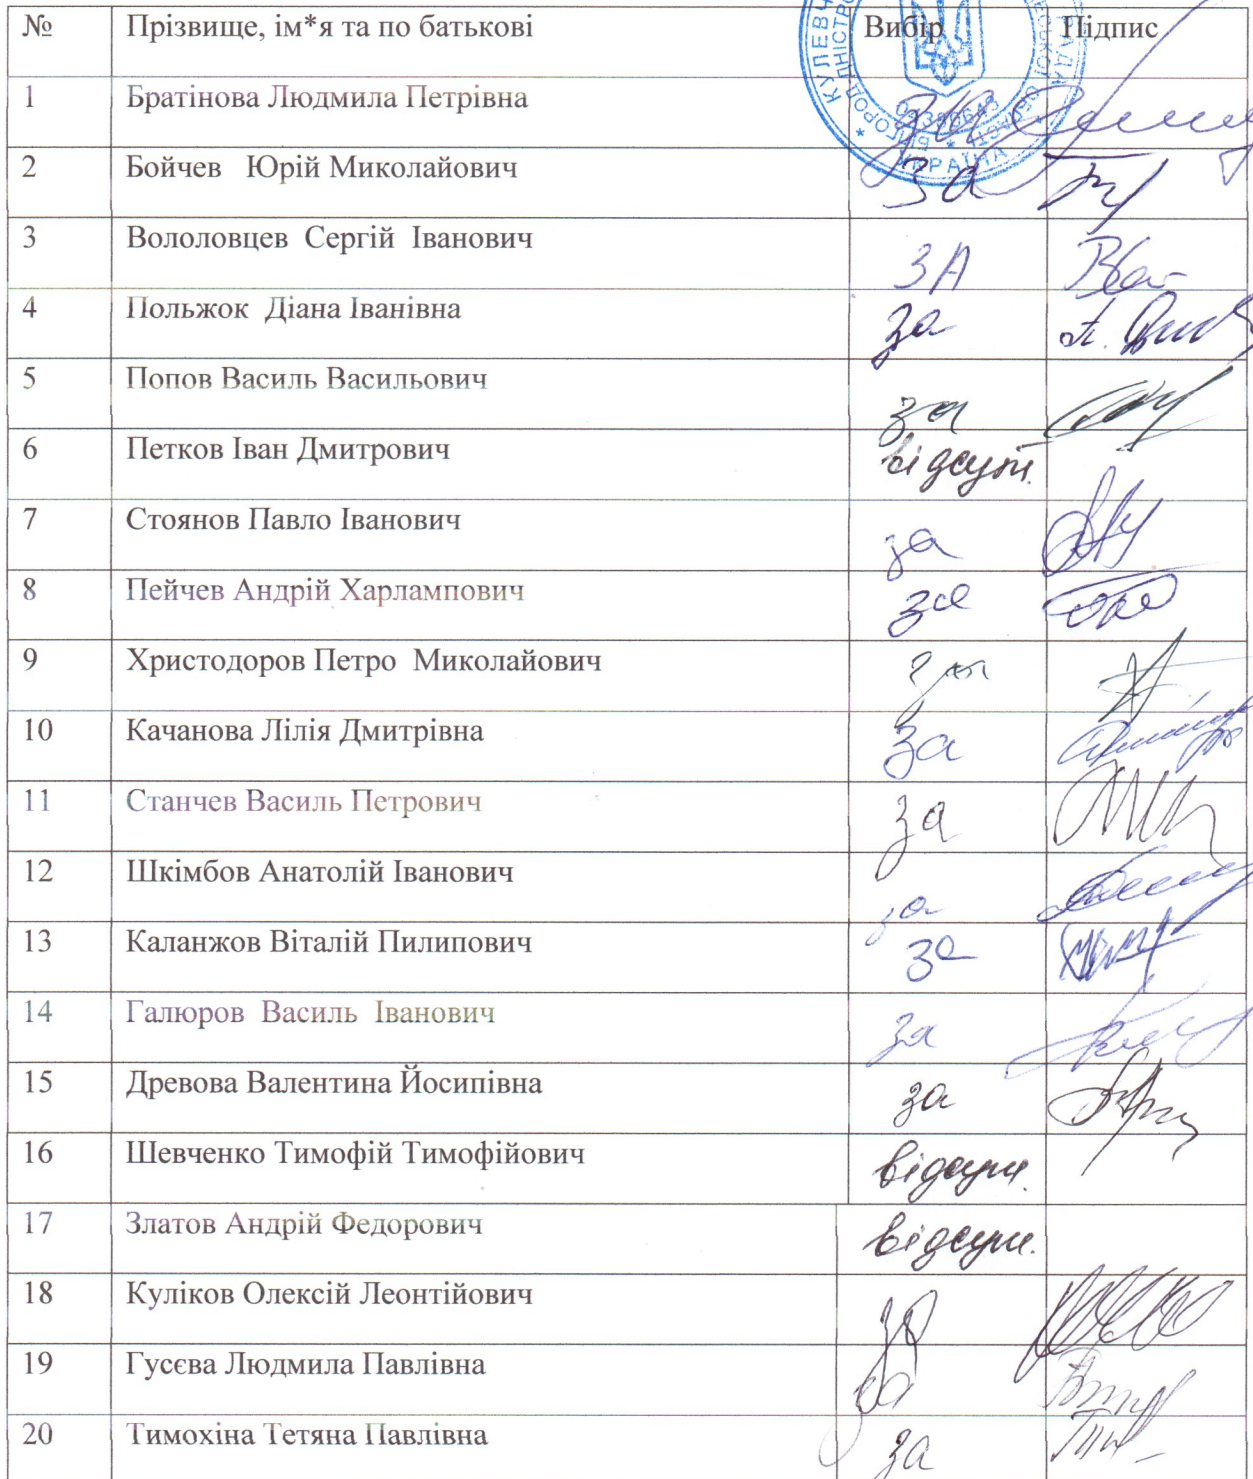 № Прізвище, ім*я та по батькові Вибір Підпис
1 Братінова Людмила Петрівна
2 Бойчев Юрій Миколайович за
3 Вололовцев Сергій Іванович ЗА
4 Польжок Діана Іванівна за
5 Попов Василь Васильович за
6 Петков Іван Дмитрович відсутн.
7 Стоянов Павло Іванович за
8 Пейчев Андрій Харлампович за
9 Христодоров Петро Миколайович за
10 Качанова Лілія Дмитрівна за
11 Станчев Василь Петрович за
12 Шкімбов Анатолій Іванович за
13 Каланжов Віталій Пилипович за
14 Галюров Василь Іванович за
15 Древова Валентина Йосипівна за
16 Шевченко Тимофій Тимофійович відсутн.
17 Златов Андрій Федорович відсутн.
18 Куліков Олексій Леонтійович за
19 Гусєва Людмила Павлівна за
20 Тимохіна Тетяна Павлівна за
УКРАЇНА